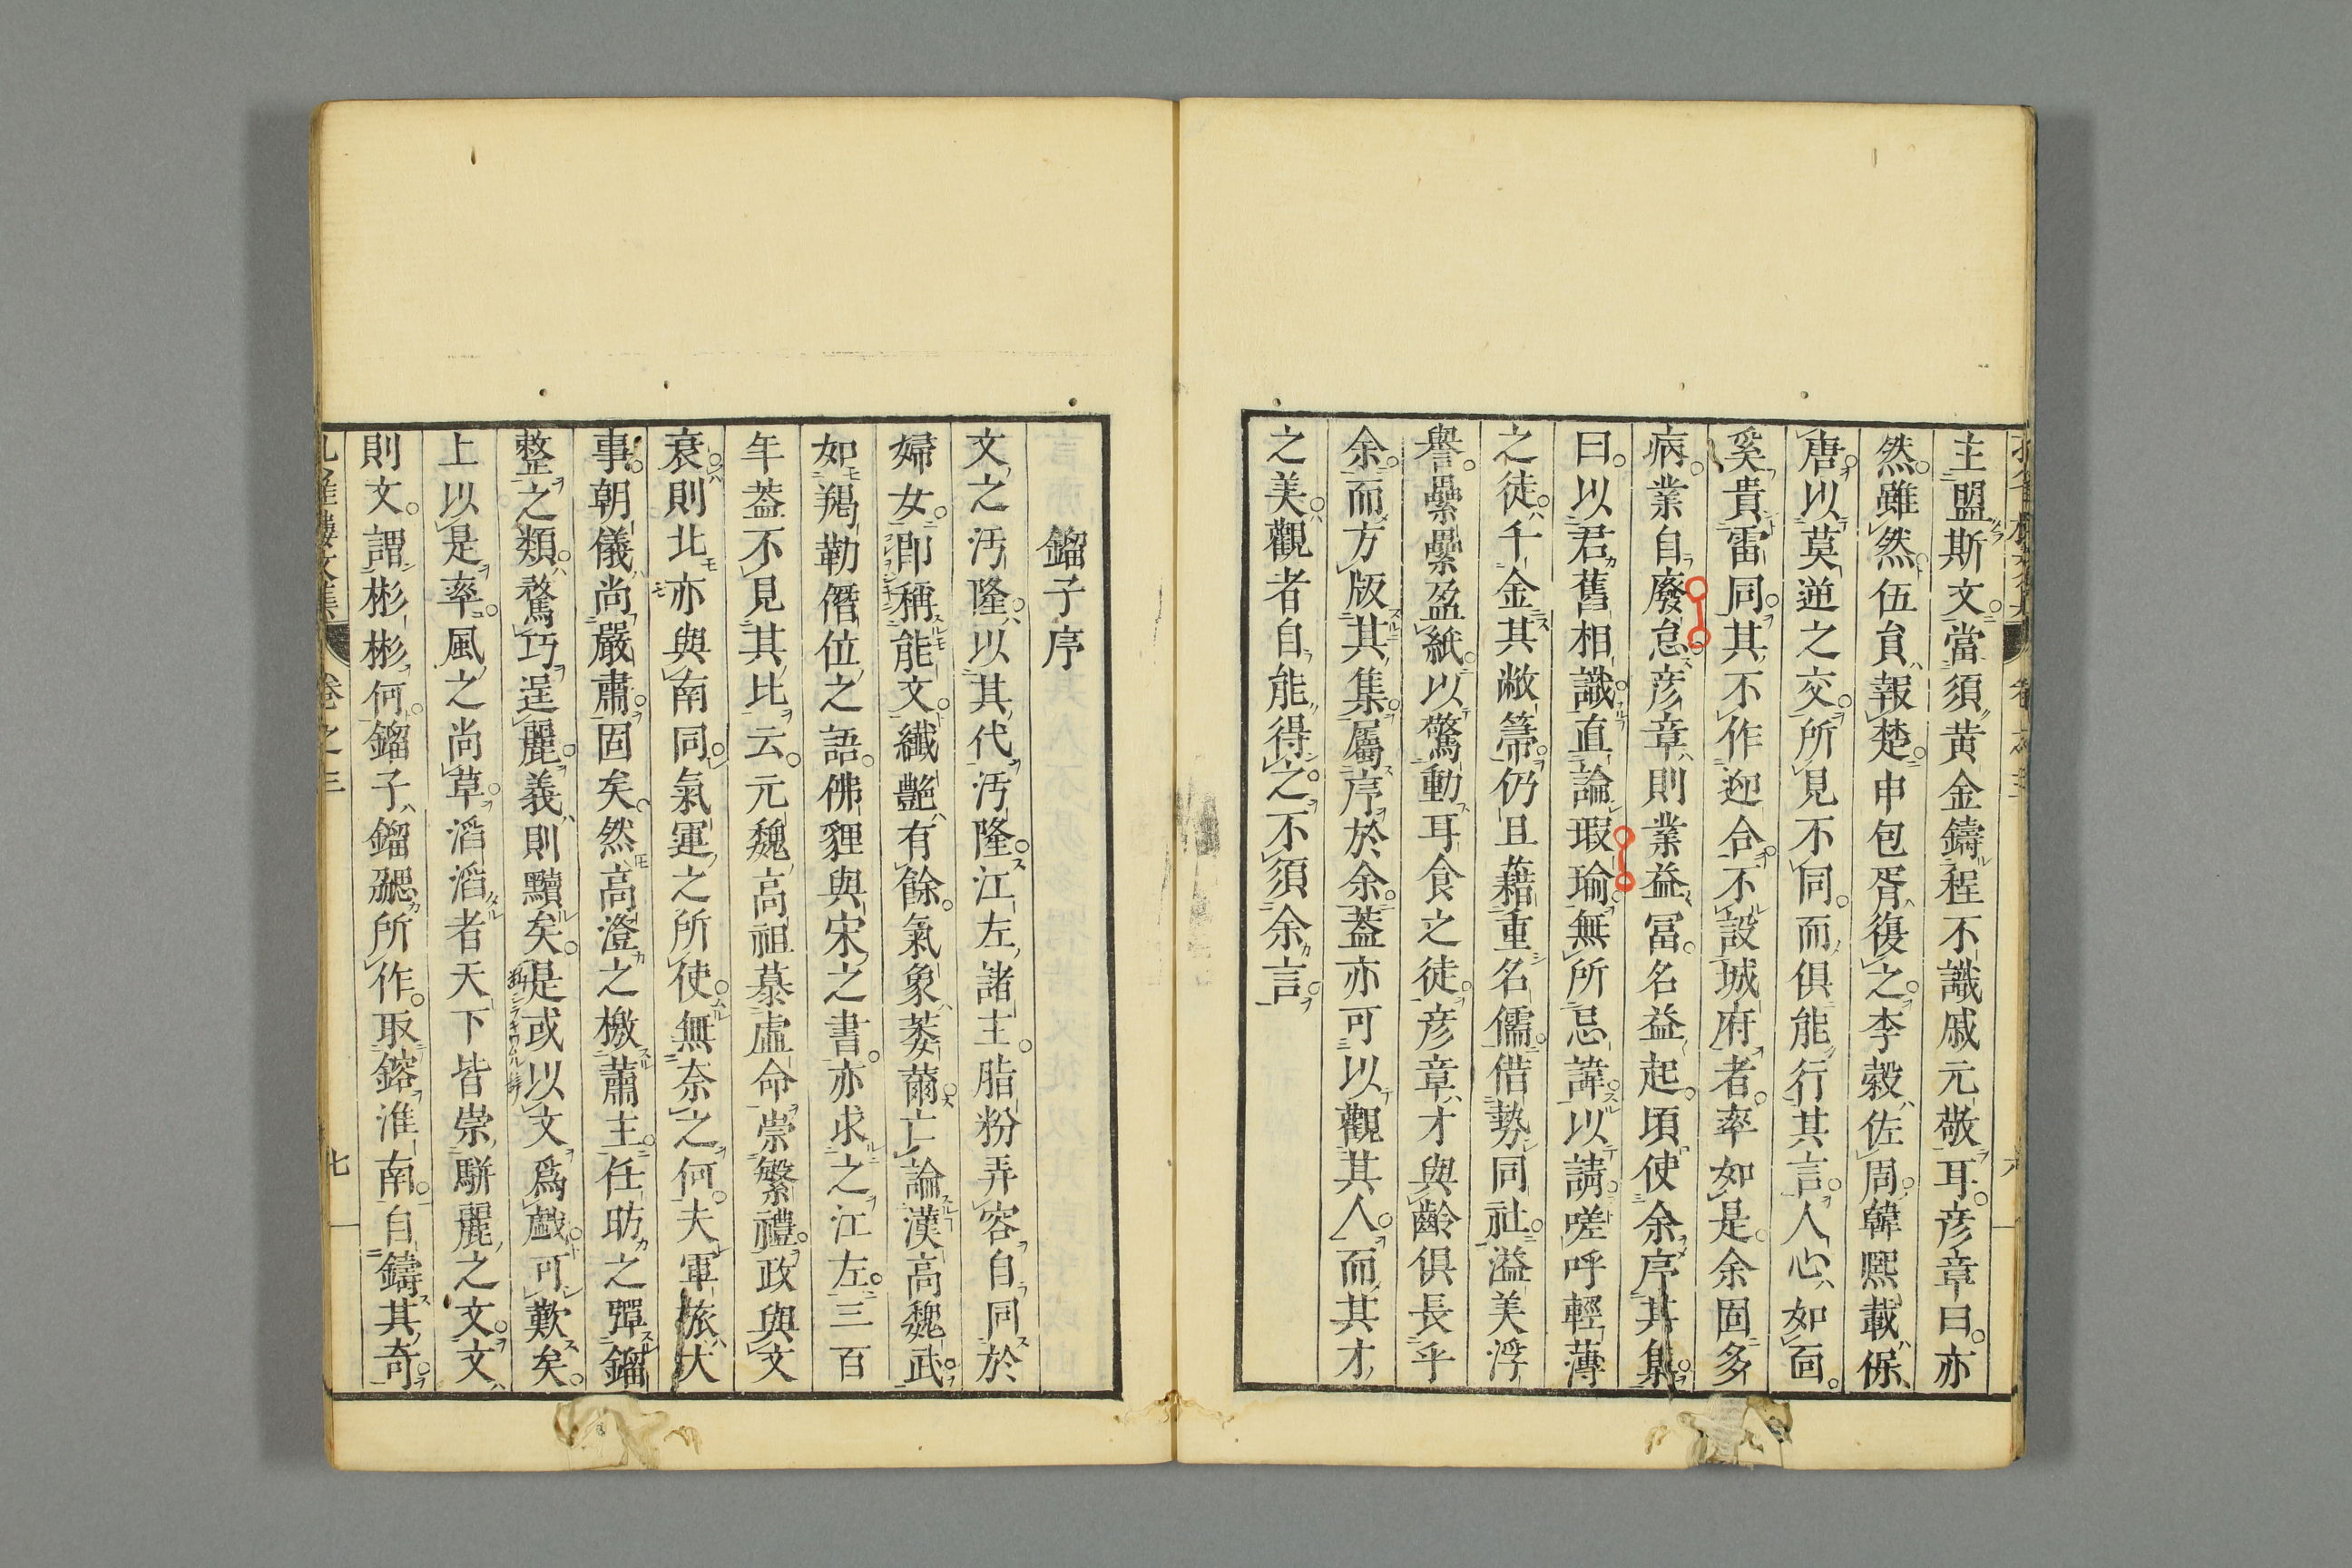 主盟斯文當須黃金鑄程不識戚元敬耳彥章曰亦
然雖然伍員報楚申包胥復之李穀佐周韓熙載保
唐以莫逆之交所見不同而俱能行其言人心如面
奚貴雷同其不作迎合不設城府者率如是余固多
病業自廢怠彥章則業益富名益起頃使余序其集
曰以君舊相識直論瑕瑜無所忌諱以請嗟呼輕薄
之徒千金其敝帚仍且藉重名儒借勢同社溢美浮
譽纍纍盈紙以驚動耳食之徒彥章才與齡俱長乎
余而方版其集屬序於余蓋亦可以觀其人而其才
之美觀者自能得之不須余言
鎦子序
文之汚隆以其代汚隆江左諸主脂粉弄容自同於
婦女卽稱能文纖艷有餘氣象萎薾亡論漢高魏武
如羯勒僭位之語佛貍與宋之書亦求之江左三百
年蓋不見其比云元魏高祖慕虛命崇繁禮政與文
衰則北亦與南同氣運之所使無奈之何夫軍旅大
事朝儀尚嚴肅固矣然高澄之檄蕭主任昉之彈鎦
整之類騖巧逞麗義則黷矣是或以文爲戲可歎矣
上以是率風之尚草滔滔者天下皆崇駢麗之文文
則文謂彬彬何鎦子鎦勰所作取鎔淮南自鑄其奇
卷之三
七